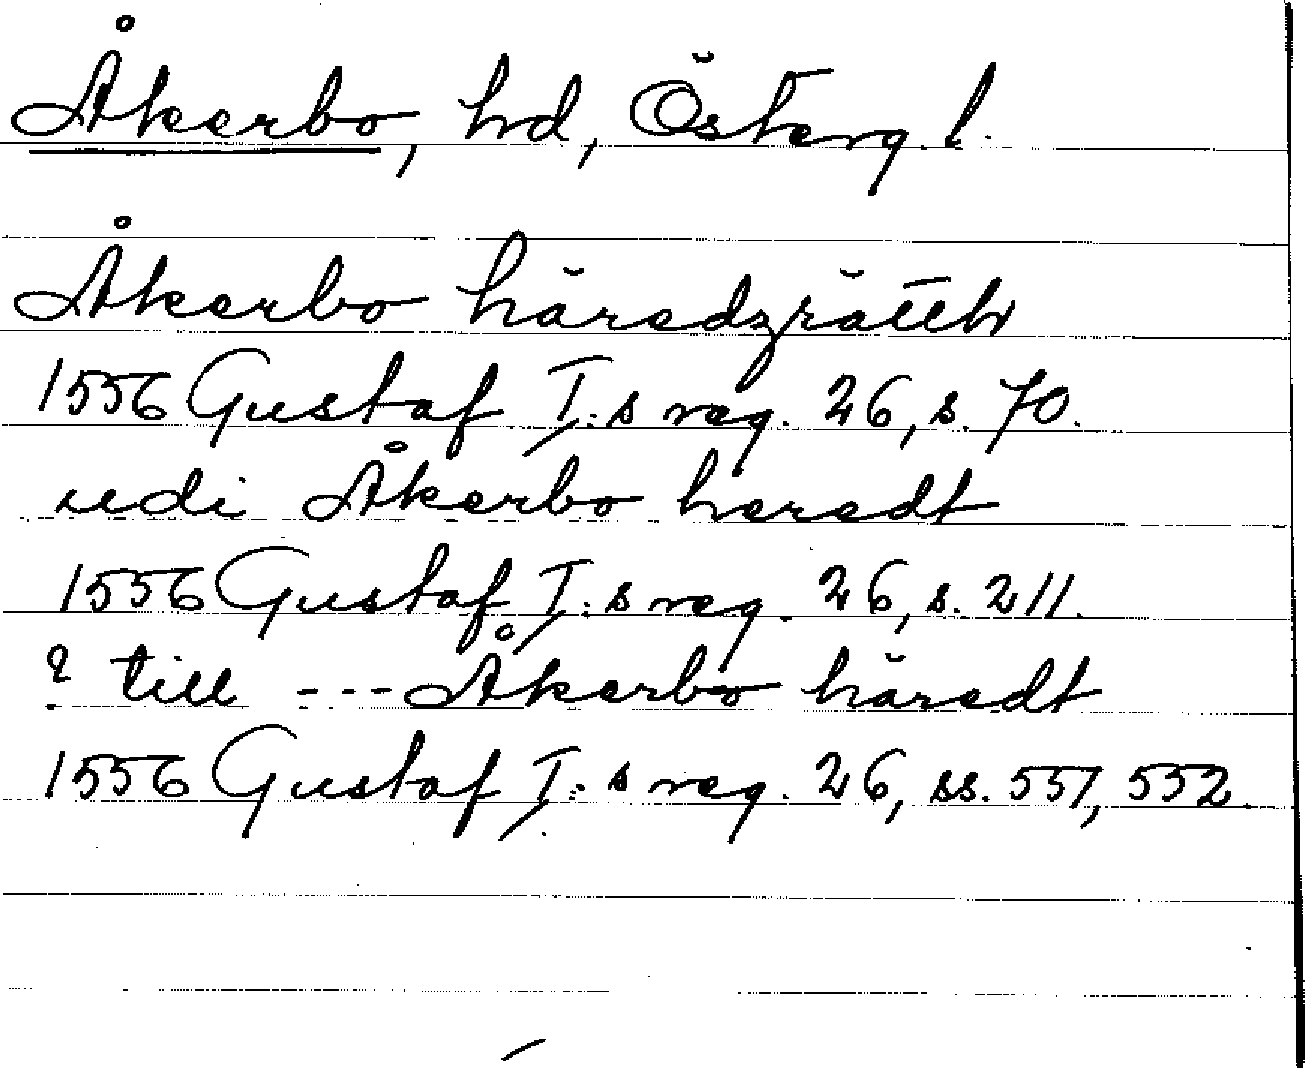 Åkerbo, hd, Österg. l.
Åkerbo häredzrätth
1556 Gustaf I:s reg. 26, s. 70.
udi Åkerbo heredt
1556 Gustaf I:s reg. 26, s. 211.
? till --- Åkerbo häredt
1556 Gustaf I:s reg. 26, ss. 551, 552.